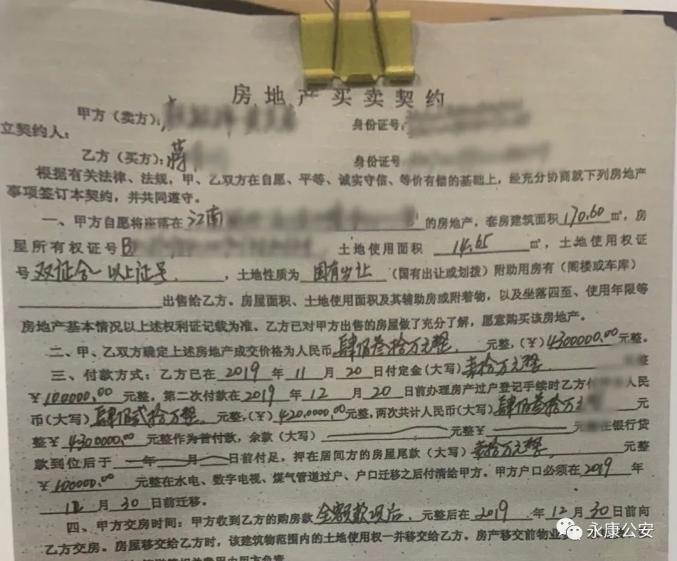 房地产买卖契约
甲方（卖方）： 身份证号：
立契约人：
乙方（买方）：蒋 身份证号：
根据有关法律、法规，甲、乙双方在自愿、平等、诚实守信、等价有偿的基础上，经充分协商就下列房地产
事项签订本契约，并共同遵守。
一、甲方自愿将座落在 江南 的房地产，套房建筑面积 170.60 ㎡，房
屋所有权证号 B 土地使用面积 14.65 ㎡，土地使用权证
号 双证合一以上证号 ，土地性质为 国有出让 （国有出让或划拨）附助用房有（阁楼或车库）
出售给乙方。房屋面积、土地使用面积及其辅助房或附着物，以及坐落四至、使用年限等
房地产基本情况以上述权利证记载为准。乙方已对甲方出售的房屋做了充分了解，愿意购买该房地产。
二、甲、乙双方确定上述房地产成交价格为人民币 肆佰叁拾万元整 元整，（￥）4300000.00 元整。
三、付款方式：乙方已在 2019 年 11 月 20 日付定金（大写）壹拾万元整 整
￥100000.00 元整。第二次付款在 2019 年 12 月 20 日前办理房产过户登记手续时乙方 人民
币（大写）肆佰贰拾万整 元整，（￥）4200000.00 元整，两次共计人民币（大写）肆佰叁拾万 元
整￥4300000.00 元整作为首付款，余款（大写） 元整￥ 元整 在银行贷
款到位后于 年 月 日前付足，押在居间方的房屋尾款（大写）壹拾万元整 元整
￥100000.00 元整在水电、数字电视、煤气管道过户、户口迁移之后付清给甲方。甲方户口必须在 2019 年
12 月 30 日前迁移。
四、甲方交房时间：甲方收到乙方的购房款 全额款项后 元整后在 2019 年 12 月 30 日前向
乙方交房。房屋移交给乙方时，该建筑物范围内的土地使用权一并移交给乙方。房产移交前物业
永康公安